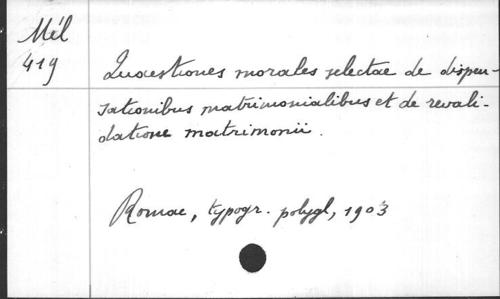 Mél
419
Quaestiones morales selectae de dispen-
sationibus matrimonialibus et de revali-
datione matrimonii.
Romae, typogr. polygl, 1903